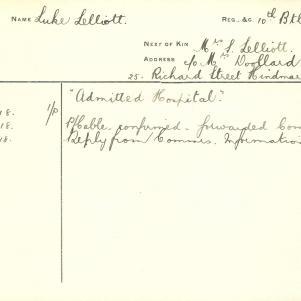 NAME Luke Lelliott. REG. &C. 10th Btl
NEXT OF KIN Mrs S. Lelliott.
ADDRESS c/o Mrs Doollard
25. Richard Street Hindmar
"Admitted Hospital."
18. 1/P
18. P/Cable. confirmed. forwarded Com
18. Reply from Commrs. Information